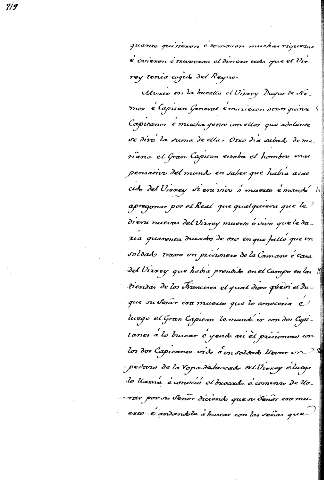 219
quanto quisieron é tomaron muchas riquezas
é ovieron é tomaron el dinero todo que el Vir-
rey tenia cogido del Reyno.
Murió en la batalla el Virrey Duque de Ne-
mos é Capitan General é murieron otros quince
Capitanes é mucha gente con ellos que adelante
se dirá la suma de ella. Otro dia sabado de ma-
ñana el Gran Capitan estaba el hombre mas
pensativo del mundo en saber que habia acae-
cido del Virrey si era vivo ó muerto é mandó
apregonar por el Real que qualquiera que le
diera nuevas del Virrey muerto ó vivo que le da-
ria quarenta ducados de oro en que falló que un
soldado trajo un prisionero de la Camara é casa
del Virrey que habia prendido en el Campo en las
tiendas de los Franceses el qual dixo
que su Señor era muerto que lo conosceria é
luego el Gran Capitan lo mandó ir con dos Capi-
tanes á lo buscar é yendo asi el prisionero con
los dos Capitanes vido á un soldado llevar un
pedazo de la Ropa de brocado del Virrey é luego
lo llamó é conoció el brocado é comenzó de llo-
rar por su Señor diciendo que su Señor era mu-
erto é andandole á buscar con las señas que